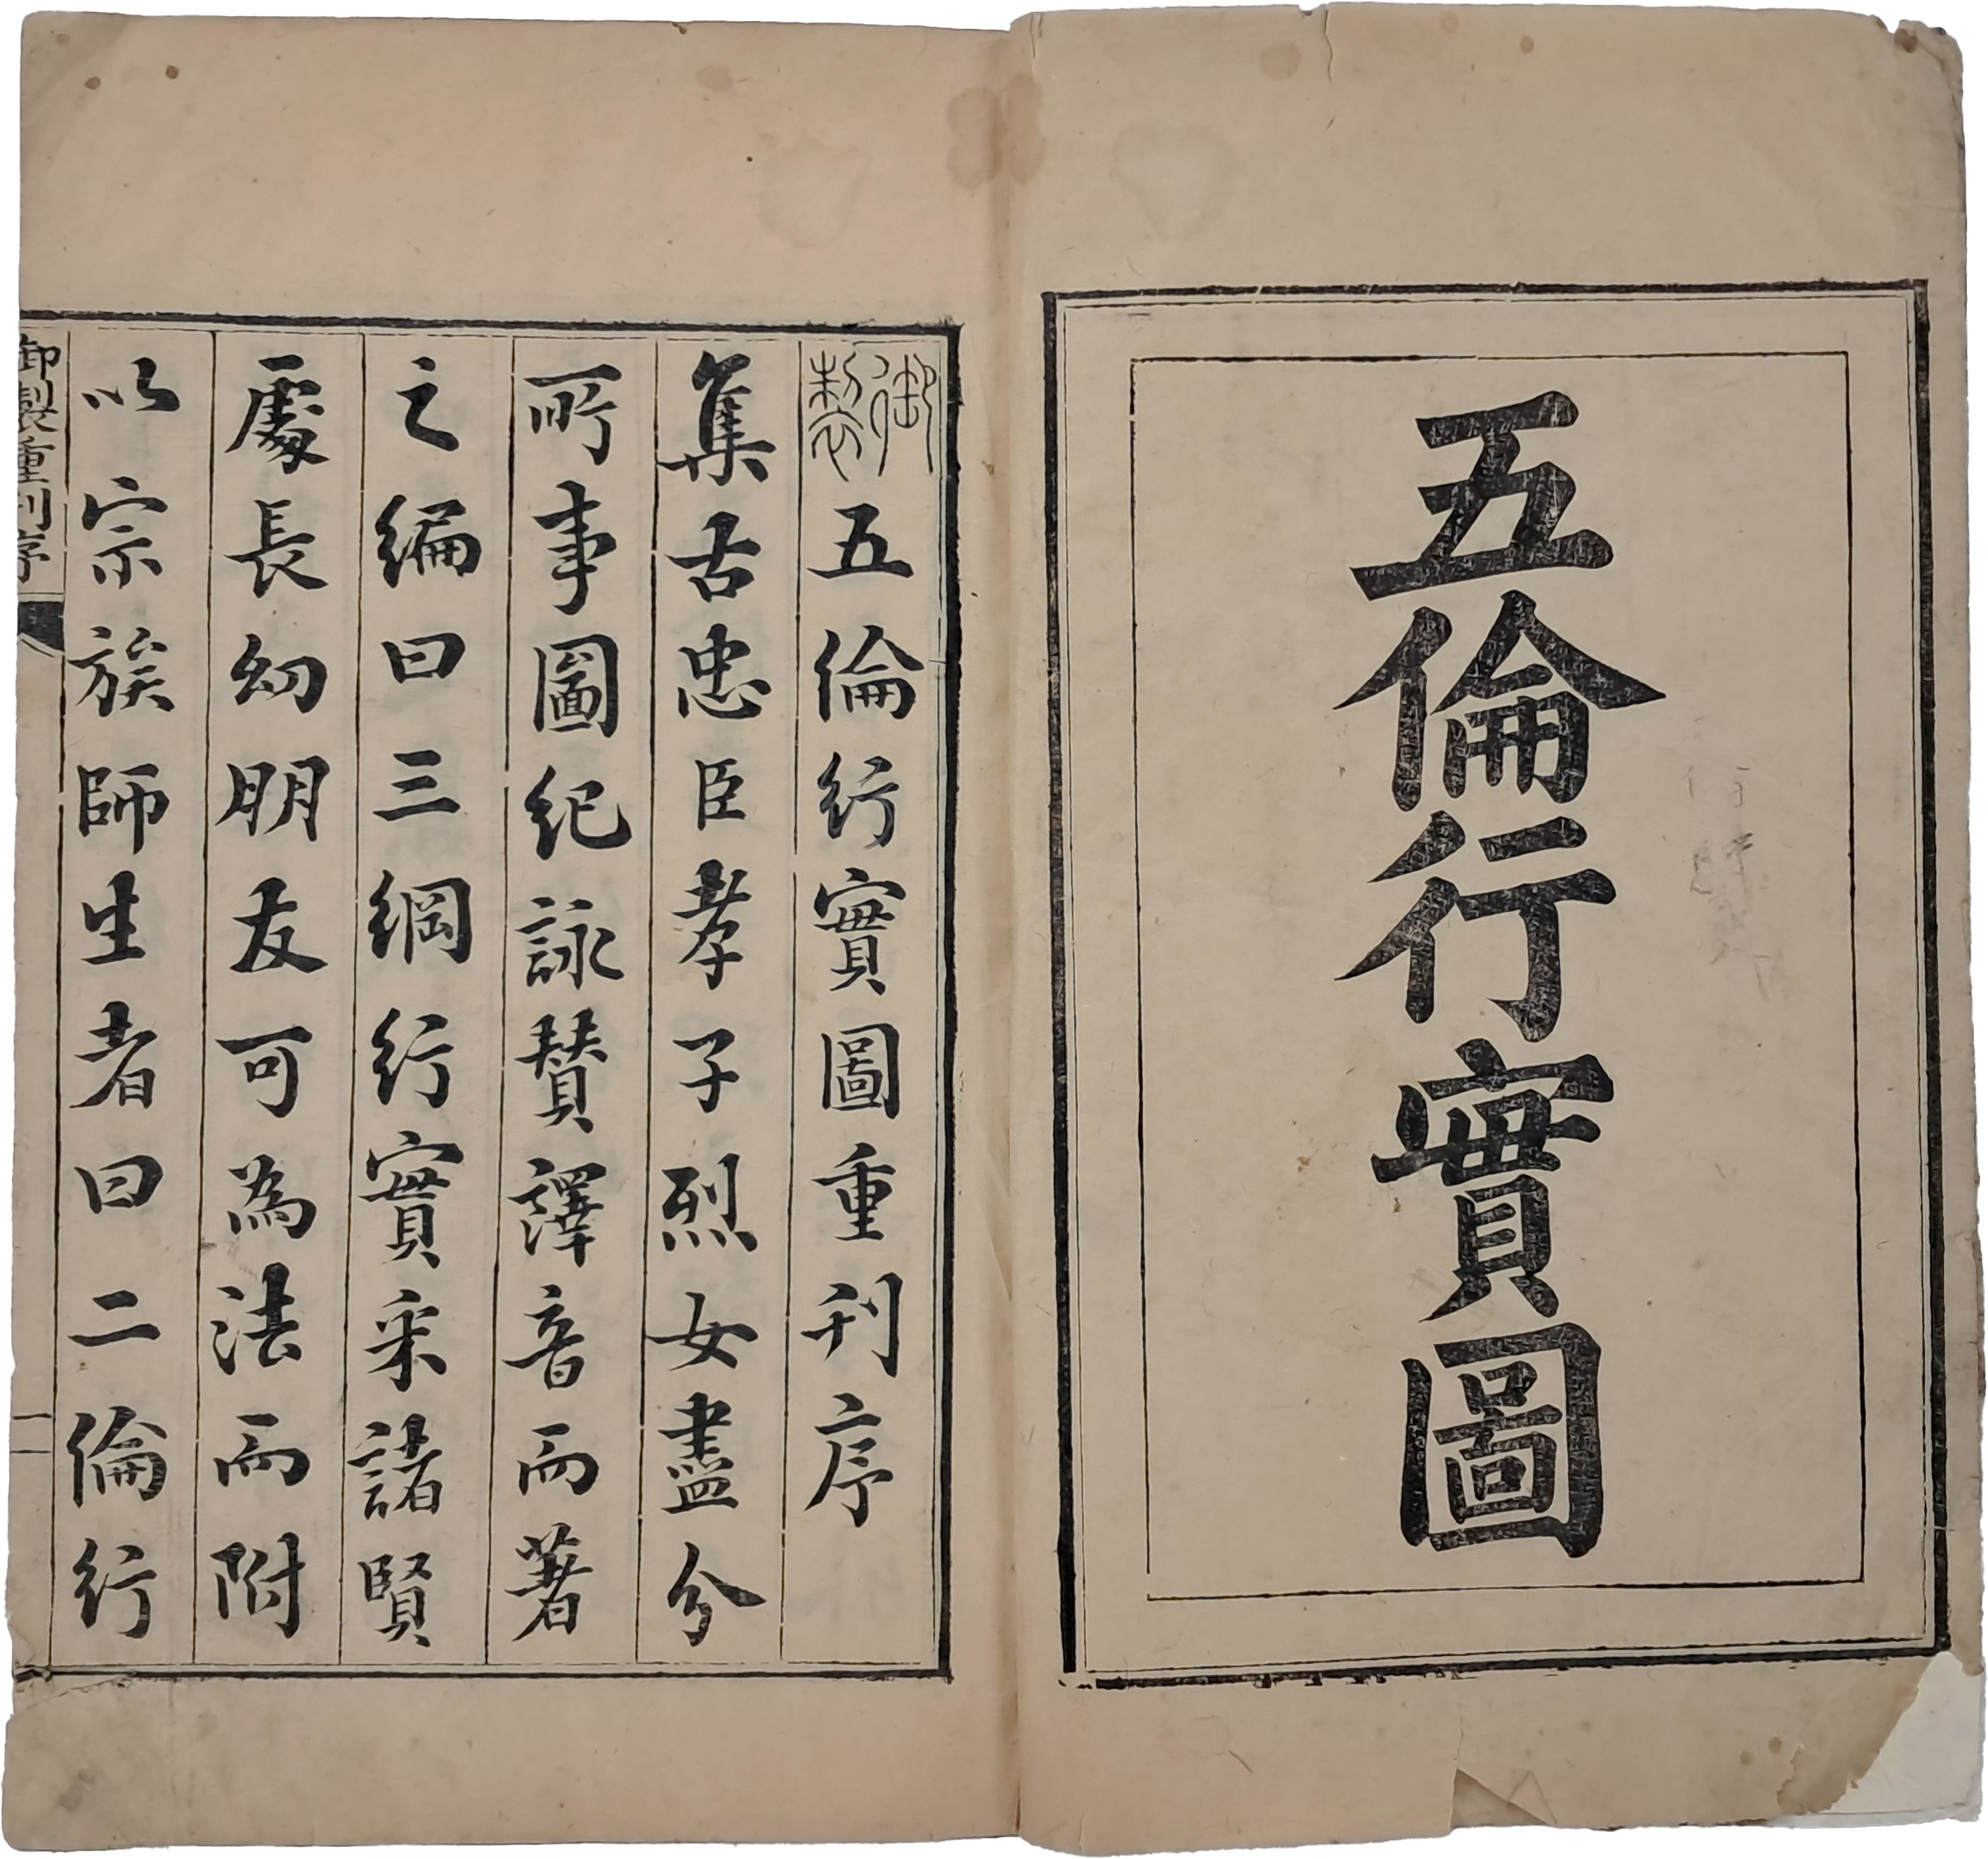 五倫行實圖
御製五倫行實圖重刊序
集古忠臣孝子烈女盡分
所事圖紀詠賛譯音而著
之編曰三綱行實采諸賢
處長幼朋友可為法而附
以宗族師生者曰二倫行
御製重刊序
一